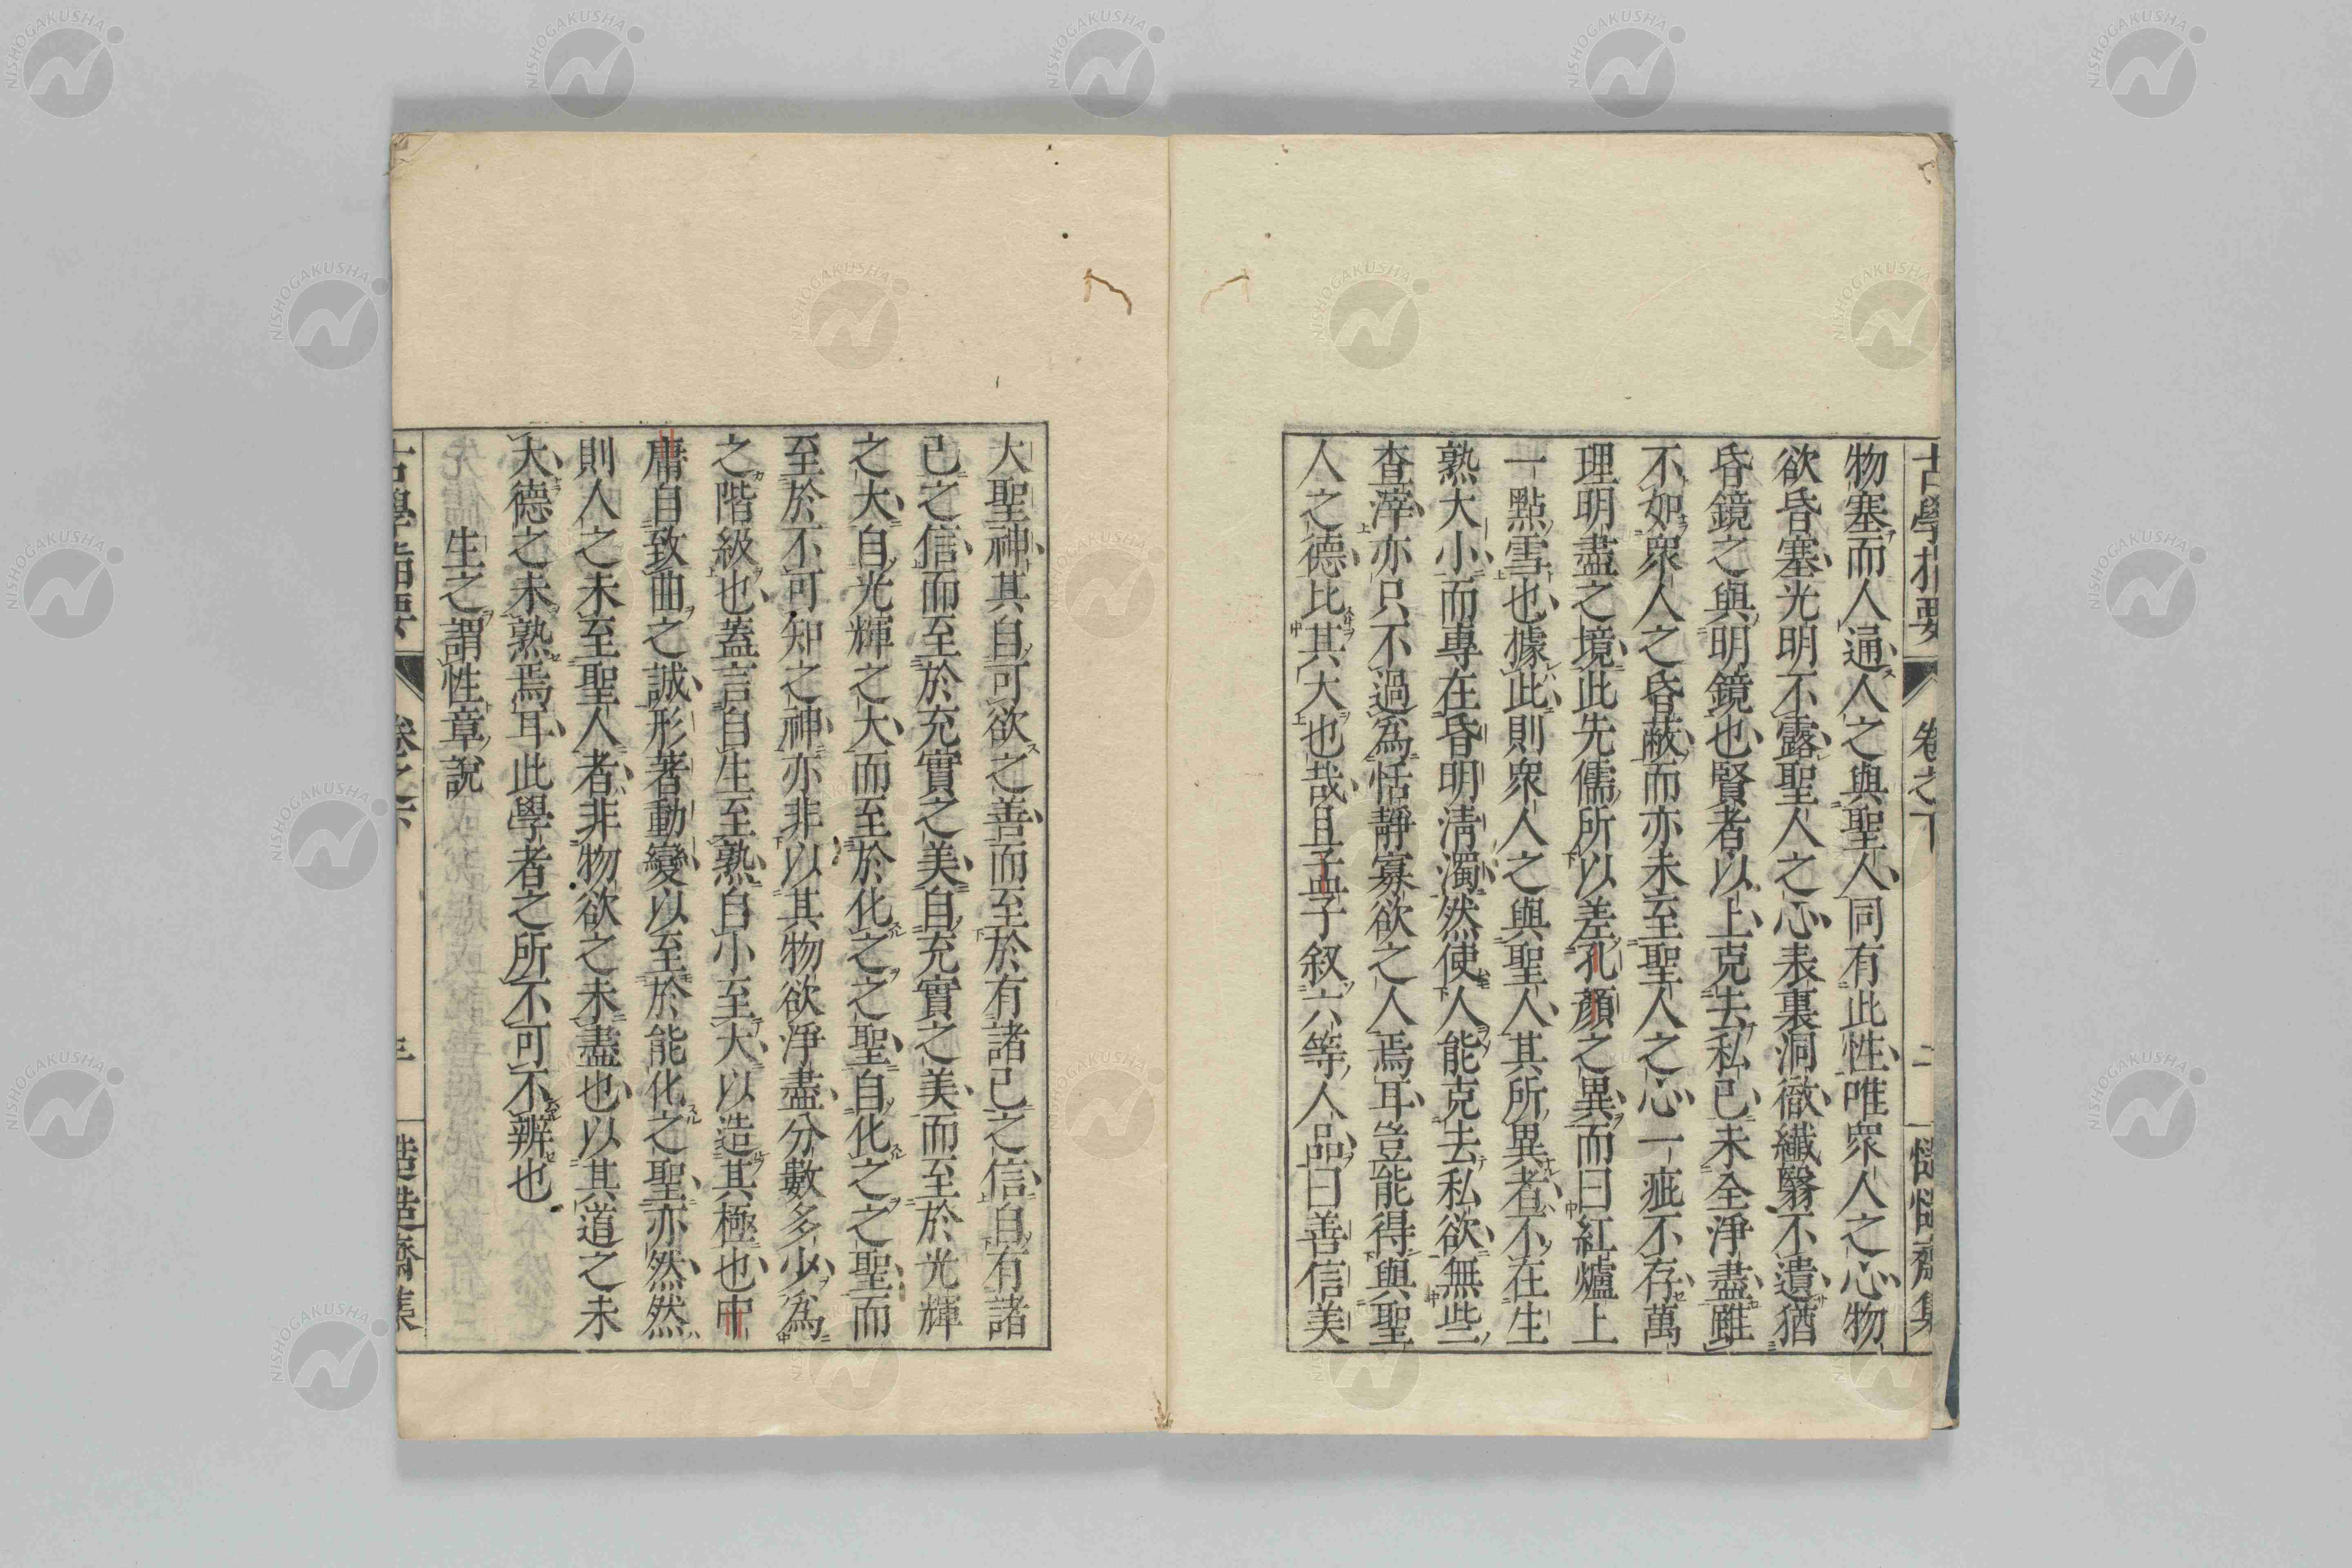 古學指要 卷之下 二 慥慥齋集
物塞而人通人之與聖人同有此性唯衆人之心物
欲昏塞光明不露聖人之心表裏洞徹纖翳不遺猶
昏鏡之與明鏡也賢者以上克去私已未全淨盡雖
不如衆人之昏蔽而亦未至聖人之心一疵不存萬
理明盡之境此先儒所以差孔顏之異而曰紅爐上
一點雪也據此則衆人之與聖人其所異者不在生
熟大小而專在昏明清濁然使人能克去私欲無些
査滓亦只不過爲恬靜寡欲之人焉耳豈能得與聖
人之德比其大也哉且孟子叙六等人品曰善信美
大聖神其自可欲之善而至於有諸己之信自有諸
己之信而至於充實之美自充實之美而至於光輝
之大自光輝之大而至於化之之聖自化之之聖而
至於不可知之神亦非以其物欲淨盡分數多少爲
之階級也蓋言自生至熟自小至大以造其極也中
庸自致曲之誠形著動變以至於能化之聖亦然然
則人之未至聖人者非物欲之未盡也以其道之未
大德之未熟焉耳此學者之所不可不辨也
生之謂性章說
古學指要 卷之下 三 慥慥齋集
NISHOGAKUSHA